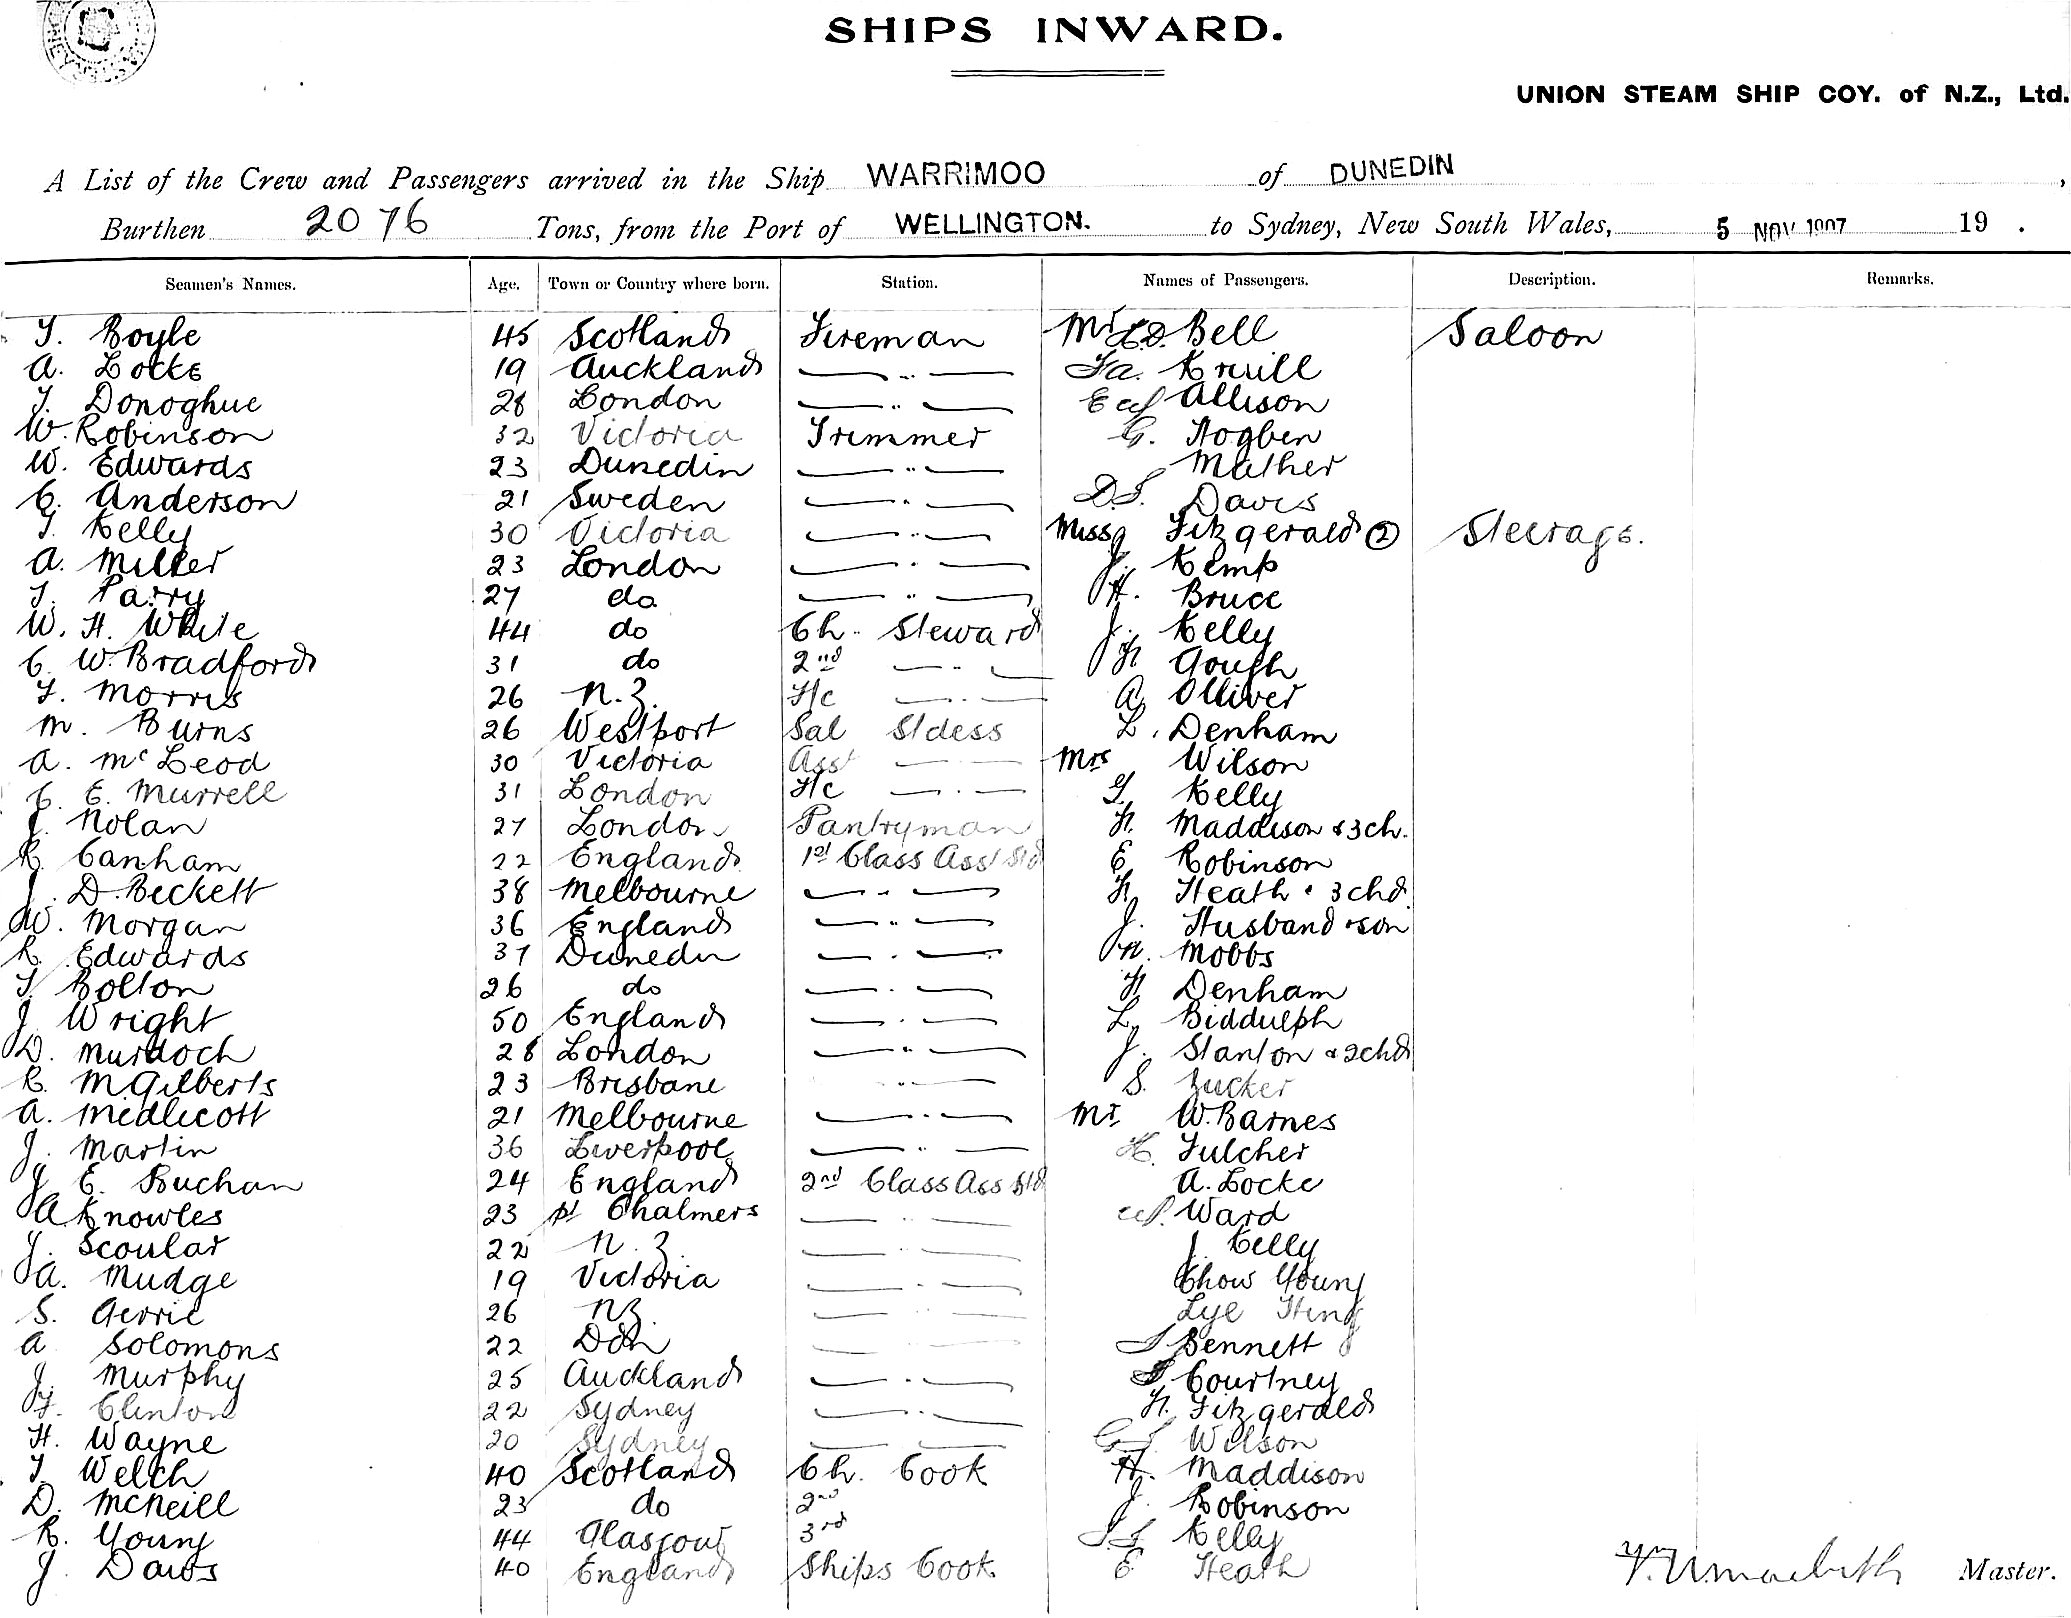 SHIPS INWARD.
UNION STEAM SHIP COY. of N.Z., Ltd.
A List of the Crew and Passengers arrived in the Ship WARRIMOO of DUNEDIN,
Burthen 2076 Tons, from the Port of WELLINGTON. to Sydney, New South Wales, 5 NOV 1907 19 .
Seamen's Names. Age. Town or Country where born. Station. Names of Passengers. Description. Remarks.
T. Boyle 45 Scotland Fireman Mr Bell Saloon
A. Locke 19 Auckland — " — Kruill
T. Donoghue 28 London — " — Allison
W. Robinson 32 Victoria Trimmer G. Hogben
W. Edwards 23 Dunedin — " — Mather
C. Anderson 21 Sweden — " — D.S. Davis
T. Kelly 30 Victoria — " — Miss Fitzgerald (2) Steerage.
A. Miller 23 London — " — J. Kemp
T. Parry 27 do — " — H. Bruce
W. H. White 44 do Ch. Steward J. Kelly
C. W. Bradford 31 do 2nd — " — H Gough
F. Morris 26 N.Z. F/c — " — A Olliver
M. Burns 26 Westport Sal Stdess L. Denham
A. McLeod 30 Victoria Asst — " — Mrs Wilson
C. E. Murrell 31 London F/c — " — G. Kelly
J. Nolan 27 London Pantryman H. Maddison & 3 ch.
R. Canham 22 England 1st Class Asst Std E. Robinson
J. D. Beckett 38 Melbourne — " — H. Heath & 3 chd
W. Morgan 36 England — " — J. Husband & son
R. Edwards 37 Dunedin — " — M. Mobbs
T. Bolton 26 do — " — H Denham
J. Wright 50 England — " — L. Biddulph
D. Murdoch 28 London — " — J. Stanton & 2 chd
R. McGilberts 23 Brisbane — " — S. Zucker
A. Medlicott 21 Melbourne — " — Mr W. Barnes
J. Martin 36 Liverpool — " — H. Fulcher
J. E. Buchan 24 England 2nd Class Ass Std A. Locke
A Knowles 23 pt Chalmers — " — W. Ward
J. Scoular 22 N.Z. — " — J. Kelly
A. Mudge 19 Victoria — " — Chow Young
S. Gerrie 26 NZ — " — Lye Hing
A Solomons 22 Ddn — " — S Bennett
J. Murphy 25 Auckland — " — S Courtney
F. Clinton 22 Sydney — " — H. Fitzgerald
H. Wayne 20 Sydney — " — G.S. Wilson
T. Welch 40 Scotland Ch. Cook H. Maddison
D. McNeill 23 do 2nd J. Robinson
R. Young 44 Glasgow 3rd Kelly
J. Davis 40 England Ships Cook E Heath
Master.